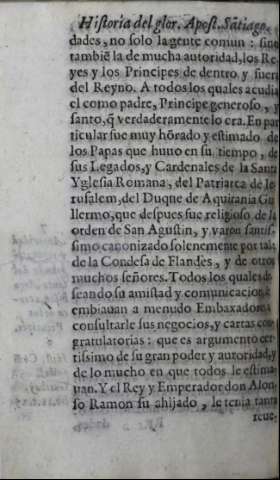 Historia del glor. Apost. Sãtiago,
dades, no solo la gente comun: sino
tambiē la de mucha autoridad, los Re
yes y los Principes de dentro y fuera
del Reyno. A todos los quales acudia
el como padre, Principe generoso, y
santo, q̃ verdaderamente lo era. En par
ticular fue muy hõrado y estimado de
los Papas que huuo en su tiempo, de
sus Legados, y Cardenales de la Santa
Yglesia Romana, del Patriarca de Ie
rusalem, del Duque de Aquitania Gui
llermo, que despues fue religioso de la
orden de San Agustin, y varon santis-
simo canonizado solenemente por tal:
de la Condesa de Flandes, y de otros
muchos señores. Todos los quales de
seando su amistad y comunicacion
embiauan a menudo Embaxadores a
consultarle sus negocios, y cartas con
gratulatorias: que es argumento cer
tissimo de su gran poder y autoridad, y
de lo mucho en que todos le estima
uan. Y el Rey y Emperador don Alon
so Ramon su ahijado, le tenia tanta
reue-